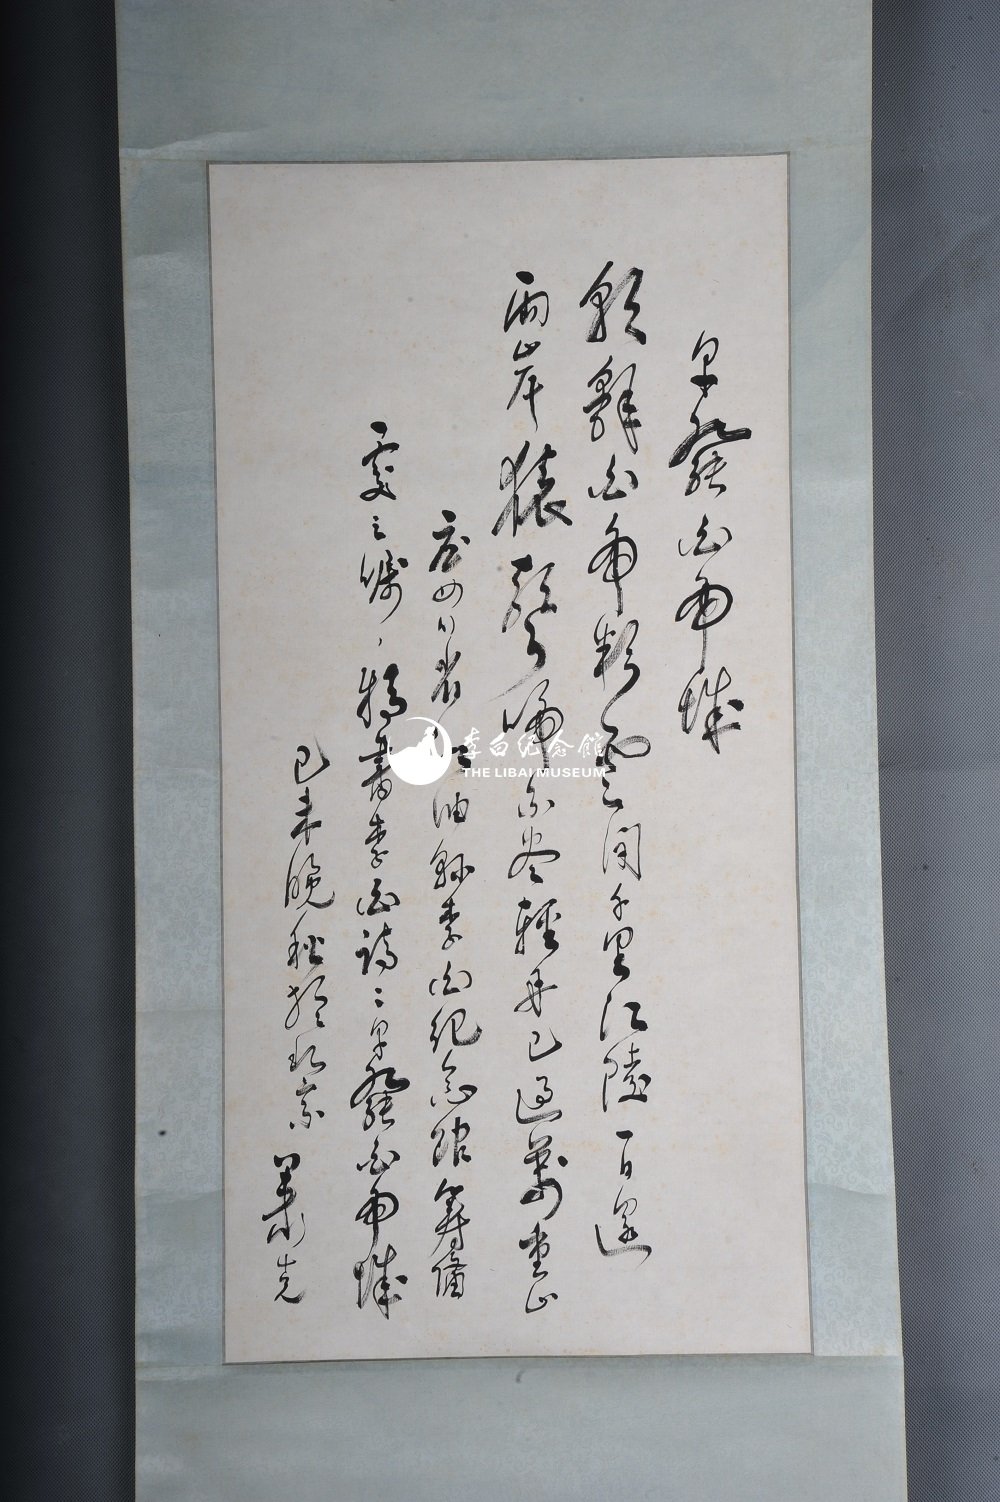 早發白帝城
朝辭白帝彩雲間千里江陵一日還
兩岸猿聲啼不盡輕舟已過萬重山
应四川省江油縣李白紀念館籌備
處之嘱、特書李白詩早發白帝城
己未晚秋於北京 克
李白纪念馆
THE LIBAI MUSEUM